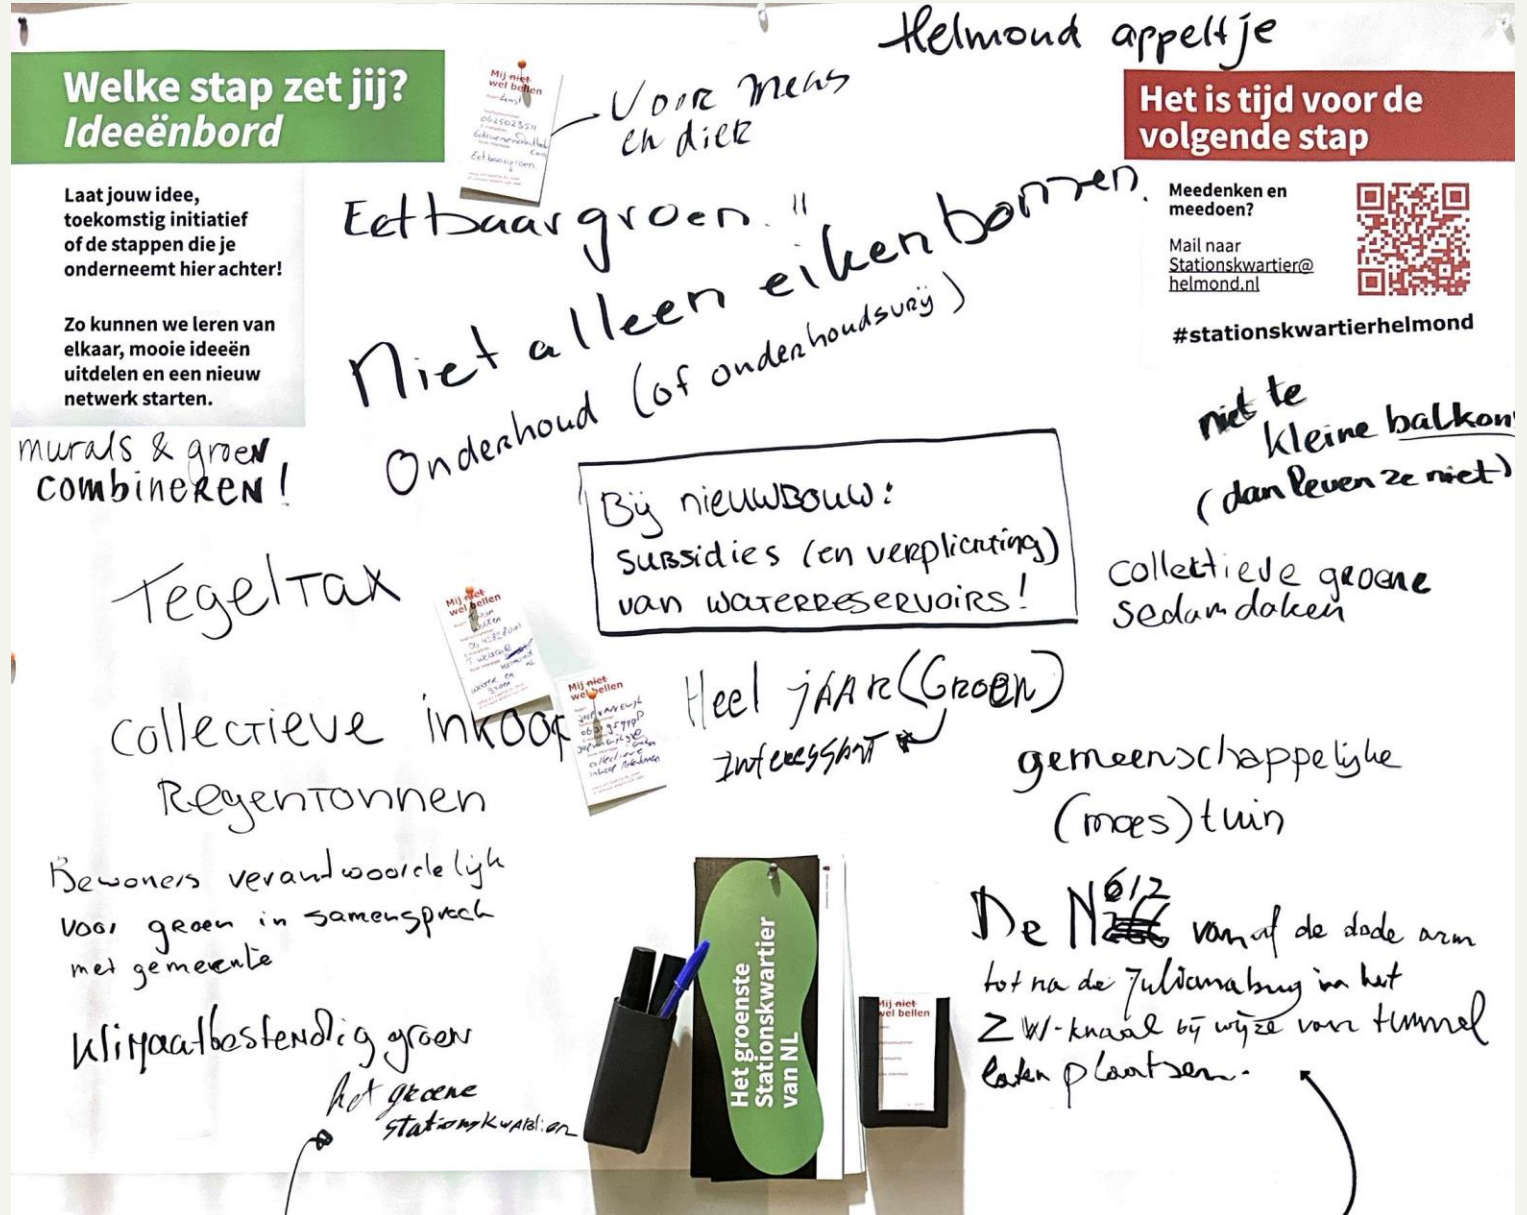 Helmond appeltje
Welke stap zet jij?
Ideeënbord
Laat jouw idee,
toekomstig initiatief
of de stappen die je
onderneemt hier achter!
Zo kunnen we leren van
elkaar, mooie ideeën
uitdelen en een nieuw
netwerk starten.
Mij niet
wel bellen
Eetbaargroen
Voor mens
en dier
Het is tijd voor de
volgende stap
Meedenken en
meedoen?
Mail naar
Stationskwartier@
helmond.nl
#stationskwartierhelmond
Eetbaar groen.
Niet alleen eikenbomen.
Onderhoud (of onderhoudsvrij)
niet te
kleine balkon
(dan leven ze niet)
murals & groen
combineren!
Bij nieuwbouw:
subsidies (en verplichting)
van waterreservoirs!
Collectieve groene
sedamdaken
Tegeltax
Mij niet
wel bellen
water en
groen
Collectieve inkoop
Regentonnen
Mij niet
wel bellen
collectieve
inkoop
Heel jaar (Groen)
Interessant
gemeenschappelijke
(moes)tuin
Bewoners verantwoordelijk
voor groen in samenspraak
met gemeente
Klimaatbestendig groen
het groene
stationskwartier
Het groenste
Stationskwartier
van NL
Mij niet
wel bellen
De N 612 vanaf de dode arm
tot na de Julianabrug in het
ZW-knaal bij wijze van tunnel
laten plaatsen.